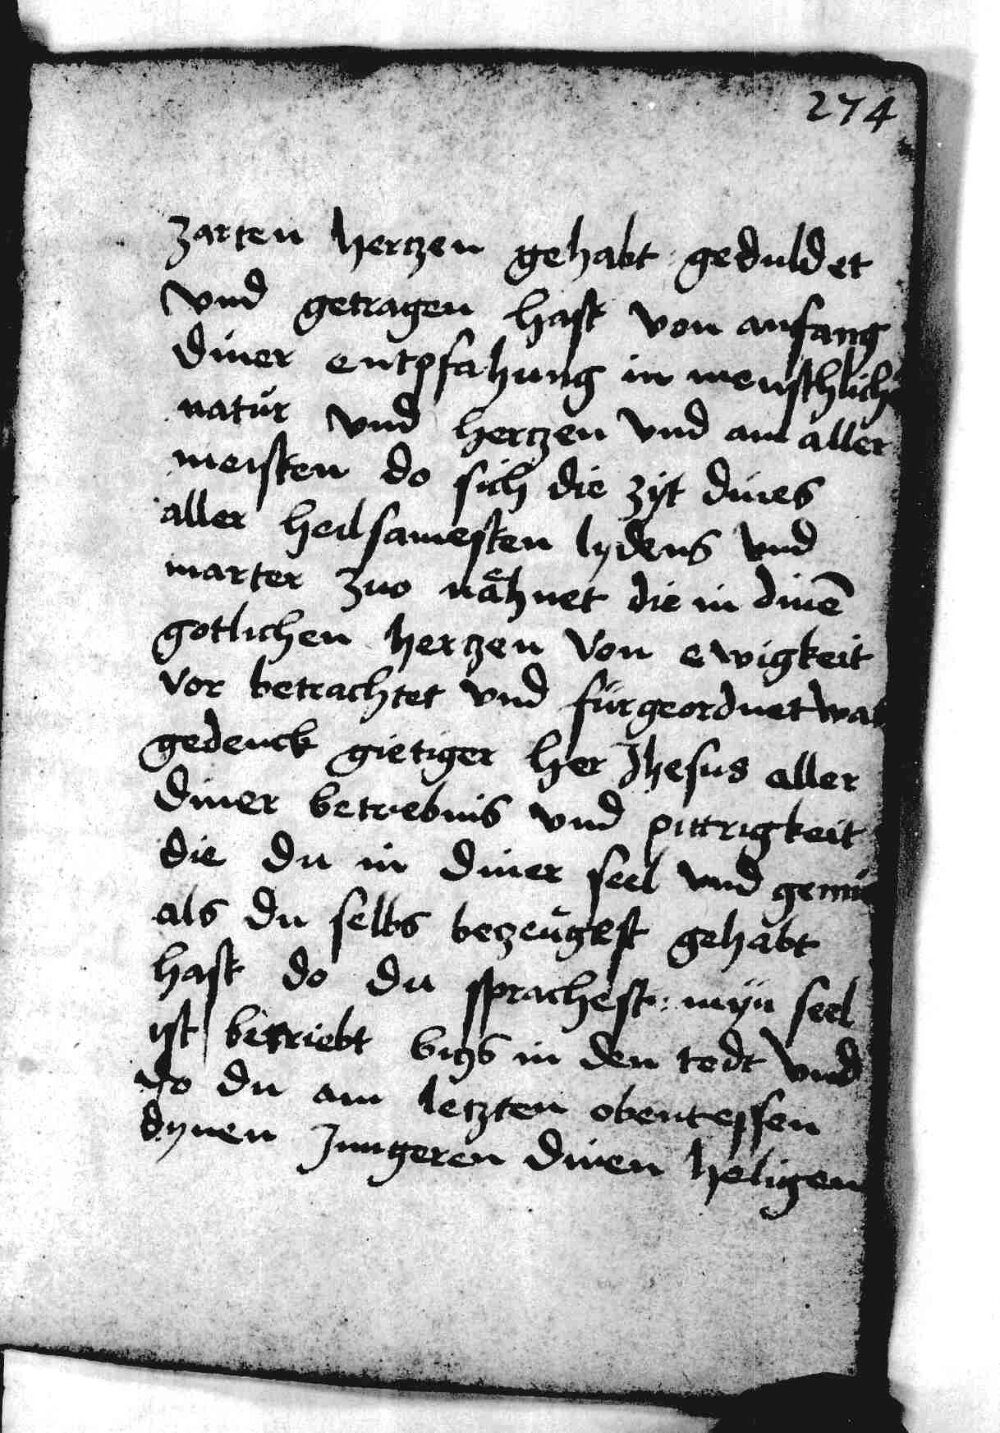 274
zarten hertzen gehabt geduldet
vnd getragen hast von anfang
diner entpfahung in menschlich
natür vnd hertzen vnd am aller
meisten do sich die zyt dines
aller heilsamesten lydens vnd
marter zuo nåhnet die in dinē
gotlichen hertzen von ewigkeit
vor betrachtet vnd fürgeordnet was
gedenck gietiger her Jhesus aller
diner betriebnis vnd pittrigkeit
die du in diner seel vnd gemüt
als du selbs bezeügest gehabt
hast do du sprachest: myn seel
ist betriebt bigs in den todt vnd
do du am letzten obentessen
dynen Jungeren dinen heligen